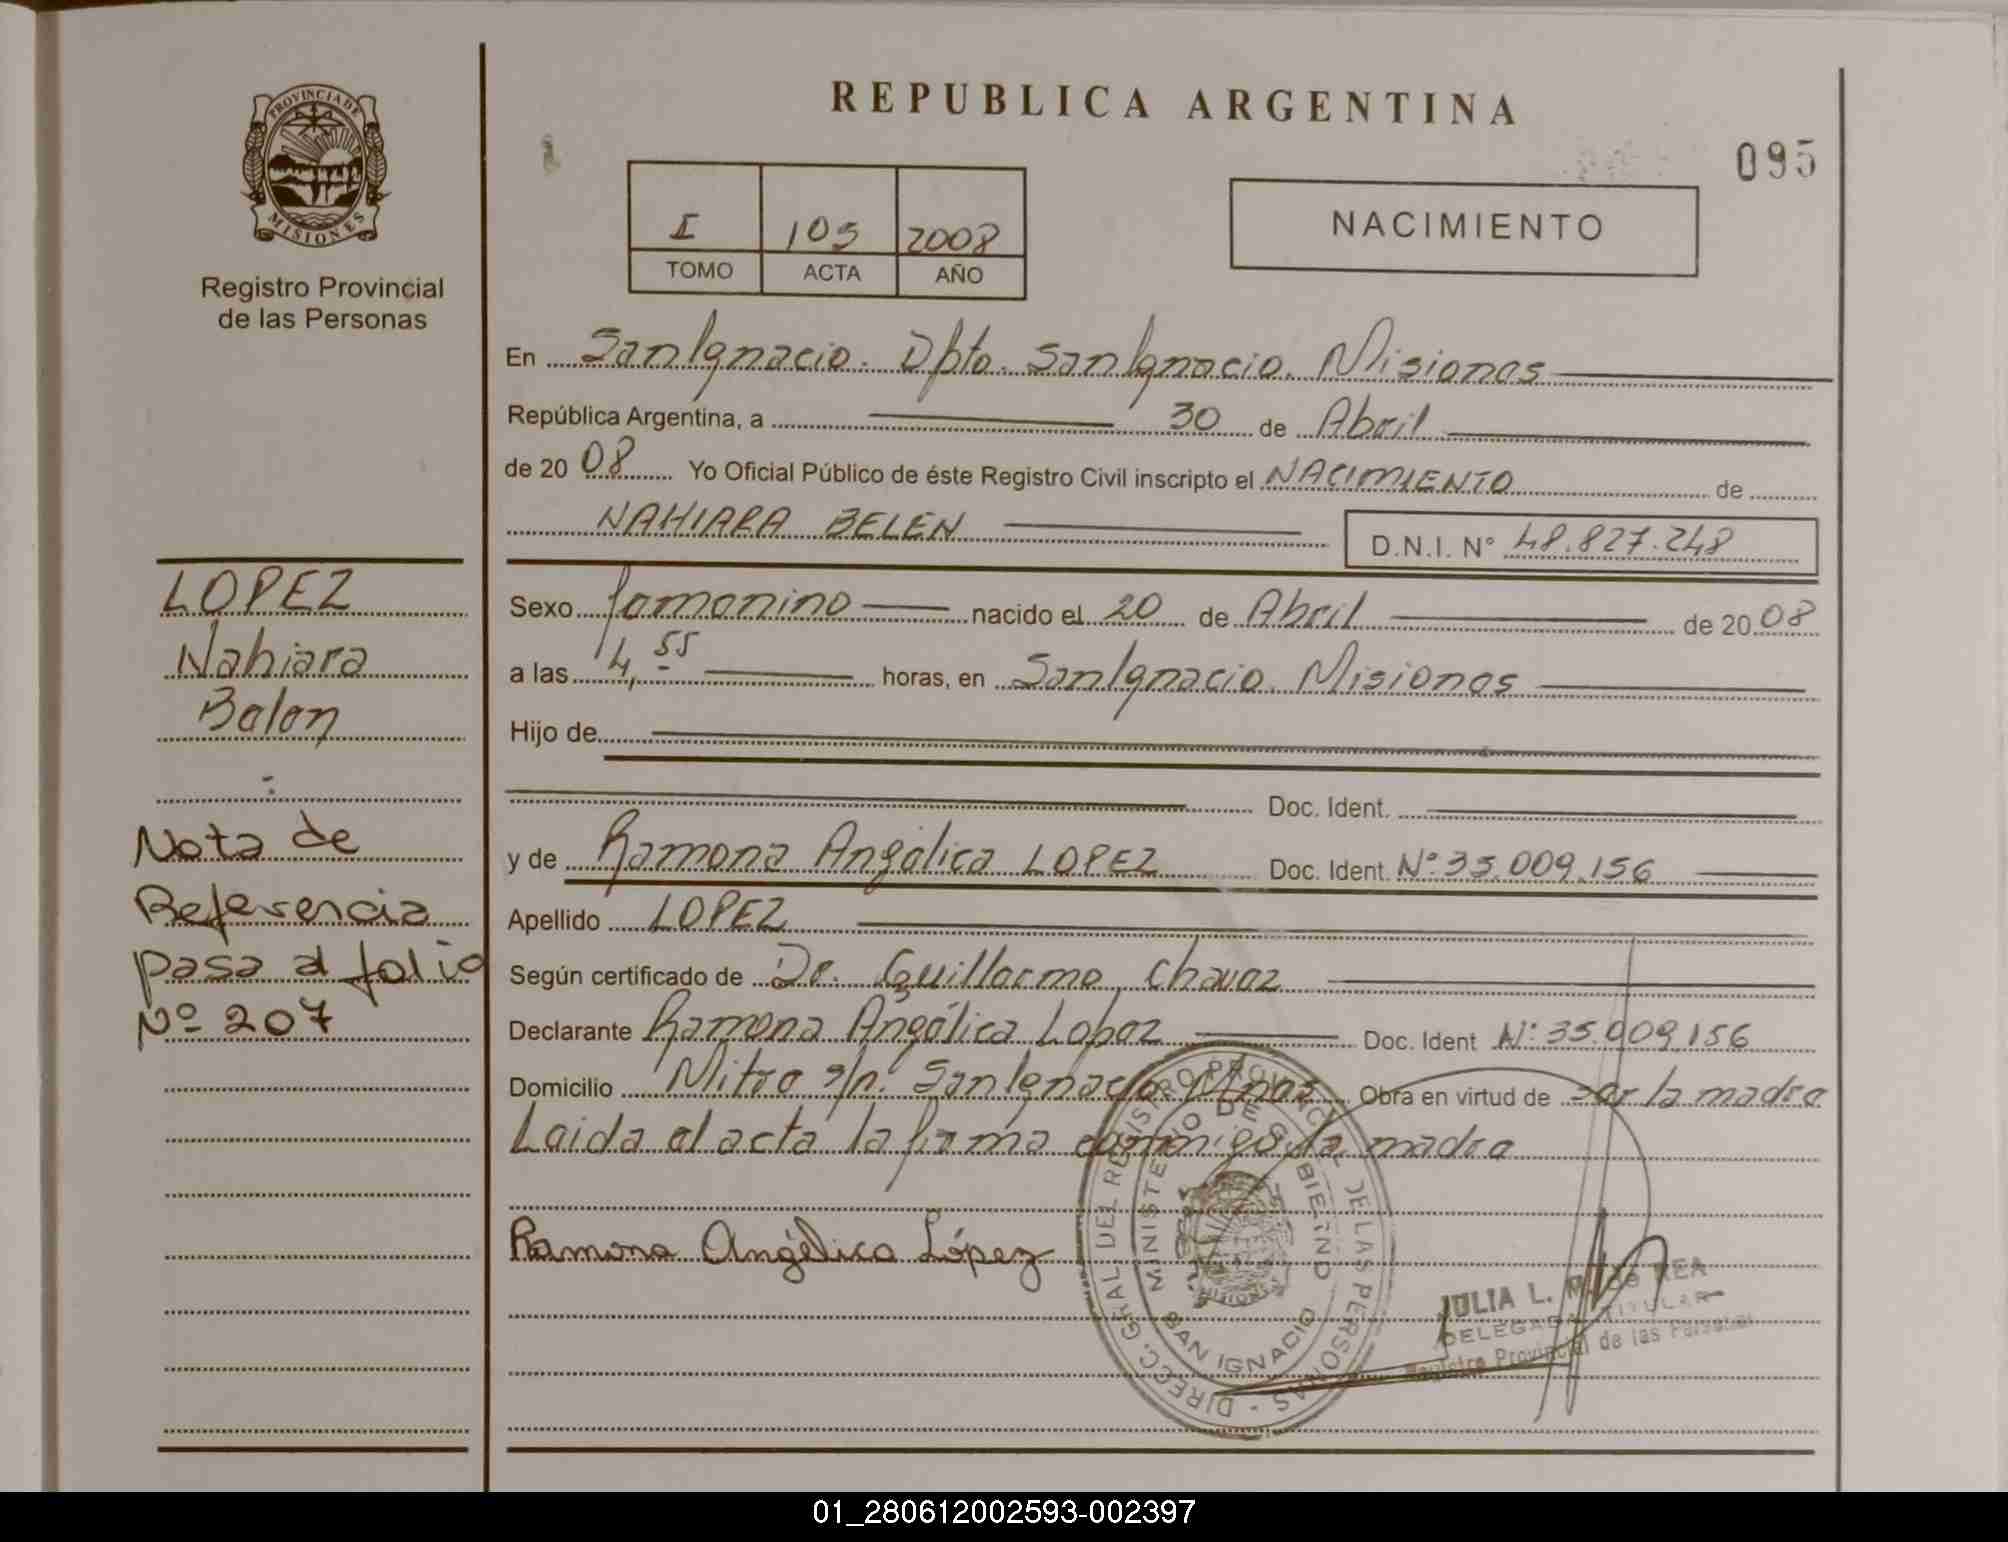 REPUBLICA ARGENTINA
095
PROVINCIA DE
MISIONES
Registro Provincial
de las Personas
I 105 2008
TOMO ACTA AÑO
NACIMIENTO
En San Ignacio. Dpto. San Ignacio. Misiones
República Argentina, a 30 de Abril
de 20 08 Yo Oficial Público de éste Registro Civil inscripto el NACIMIENTO de
NAHIARA BELEN D.N.I. N° 48.827.248
LOPEZ
Nahiara
Belen
Nota de
Referencia
pasa al folio
Nº 207
Sexo femenino nacido el 20 de Abril de 20 08
a las 4,55 horas, en San Ignacio. Misiones
Hijo de
Doc. Ident.
y de Ramona Angélica LOPEZ Doc. Ident. Nº 35.009.156
Apellido LOPEZ
Según certificado de Dr. Guillermo Chavez
Declarante Ramona Angélica Lopez Doc. Ident N: 35.009.156
Domicilio Mitre s/n. San Ignacio Mnes Obra en virtud de ser la madre
Leida el acta la firma conmigo la madre
Ramona Angélica López
DIRECC. GRAL. DEL REGISTRO PROVINCIAL DE LAS PERSONAS
MINISTERIO DE GOBIERNO
MISIONES
SAN IGNACIO
JULIA L. M. de REA
DELEGADA TITULAR
Registro Provincial de las Personas
01_280612002593-002397